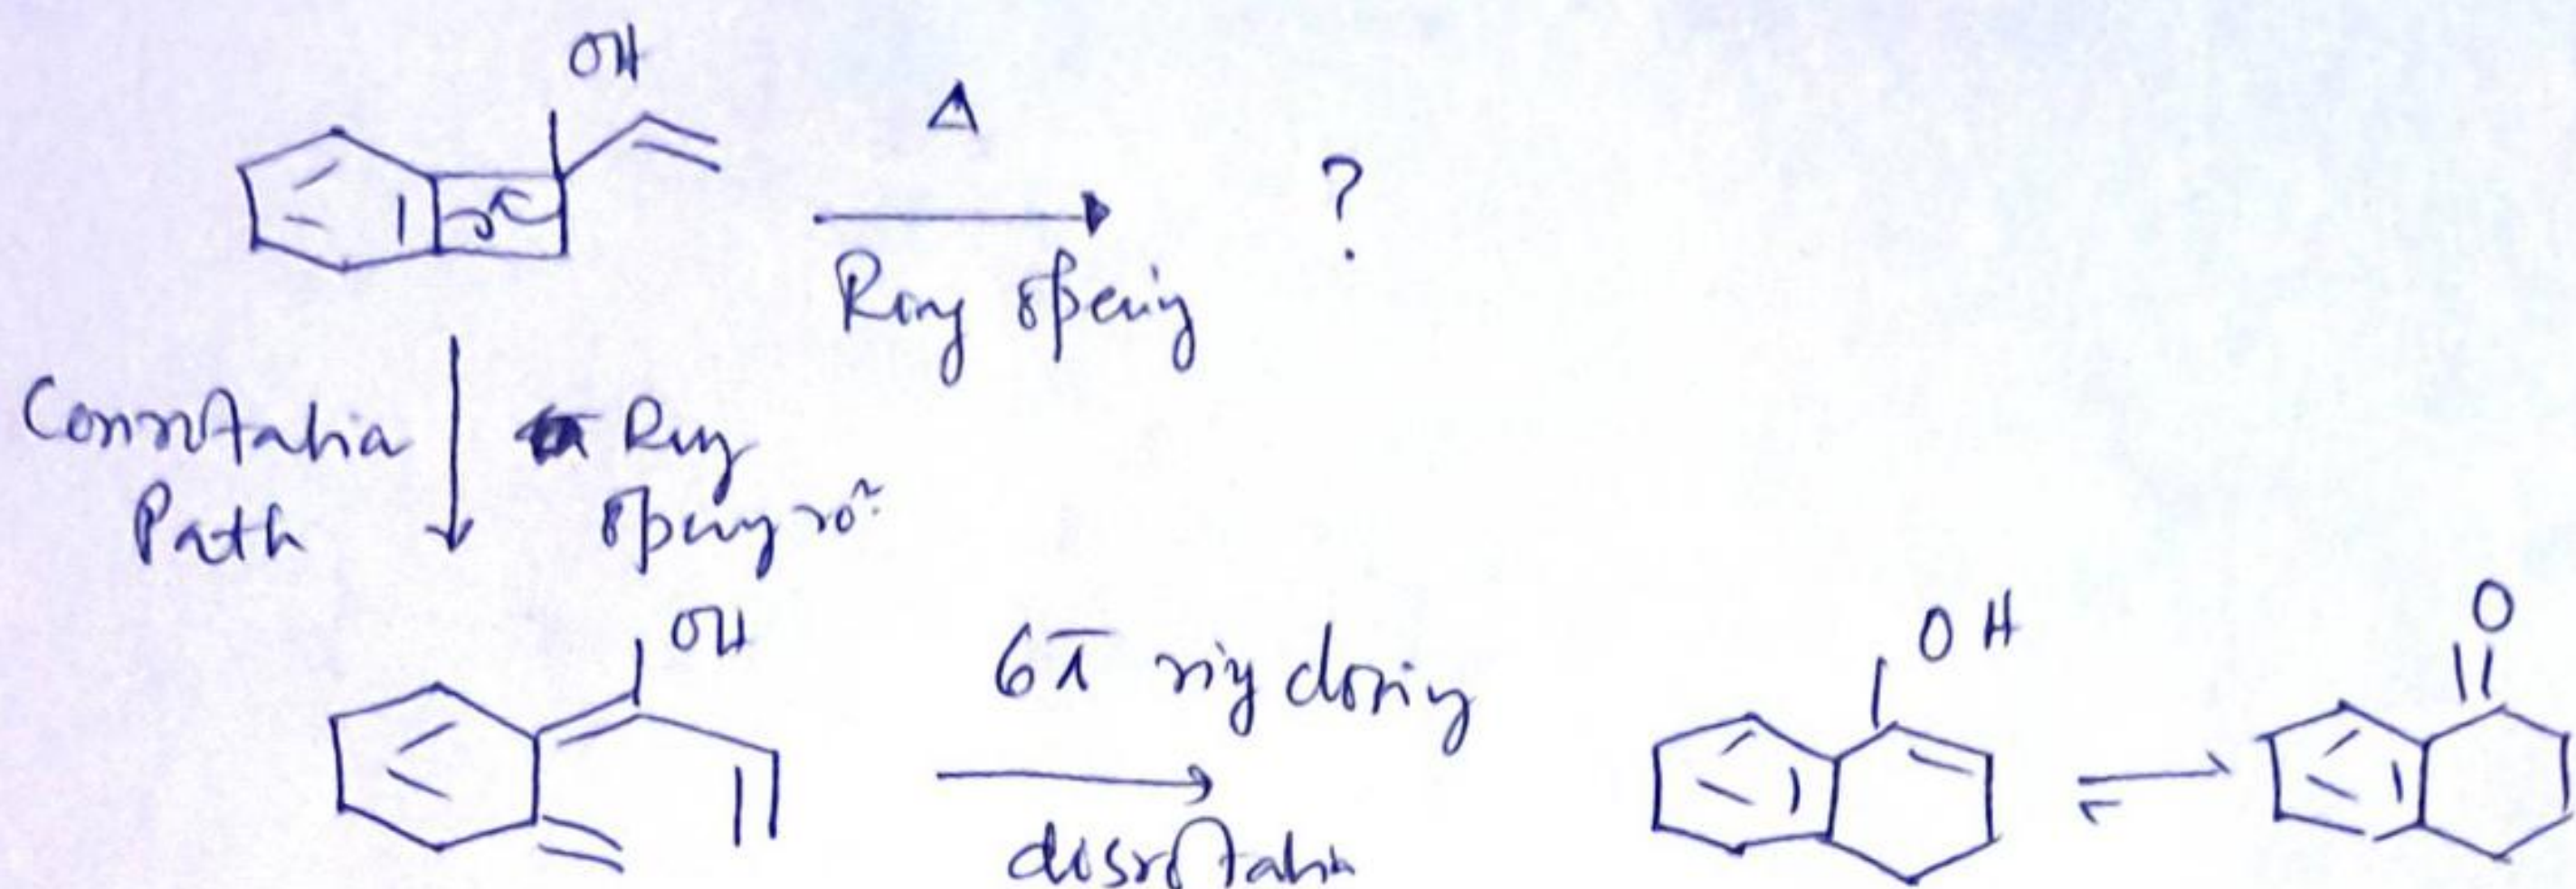 OH
Δ
?
Ring opening
Conrotatia
Path
Ring
opening
OH
6π ring closing
disrotatia
OH
O